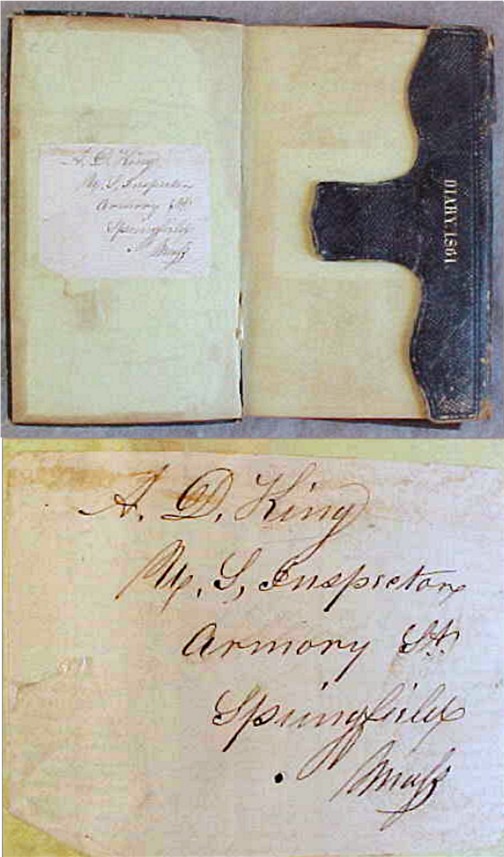 A. D. King
U. S, Inspector
Armory St.
Springfield
Mass
DIARY, 1861
A. D. King
U. S, Inspector
Armory St.
Springfield
Mass